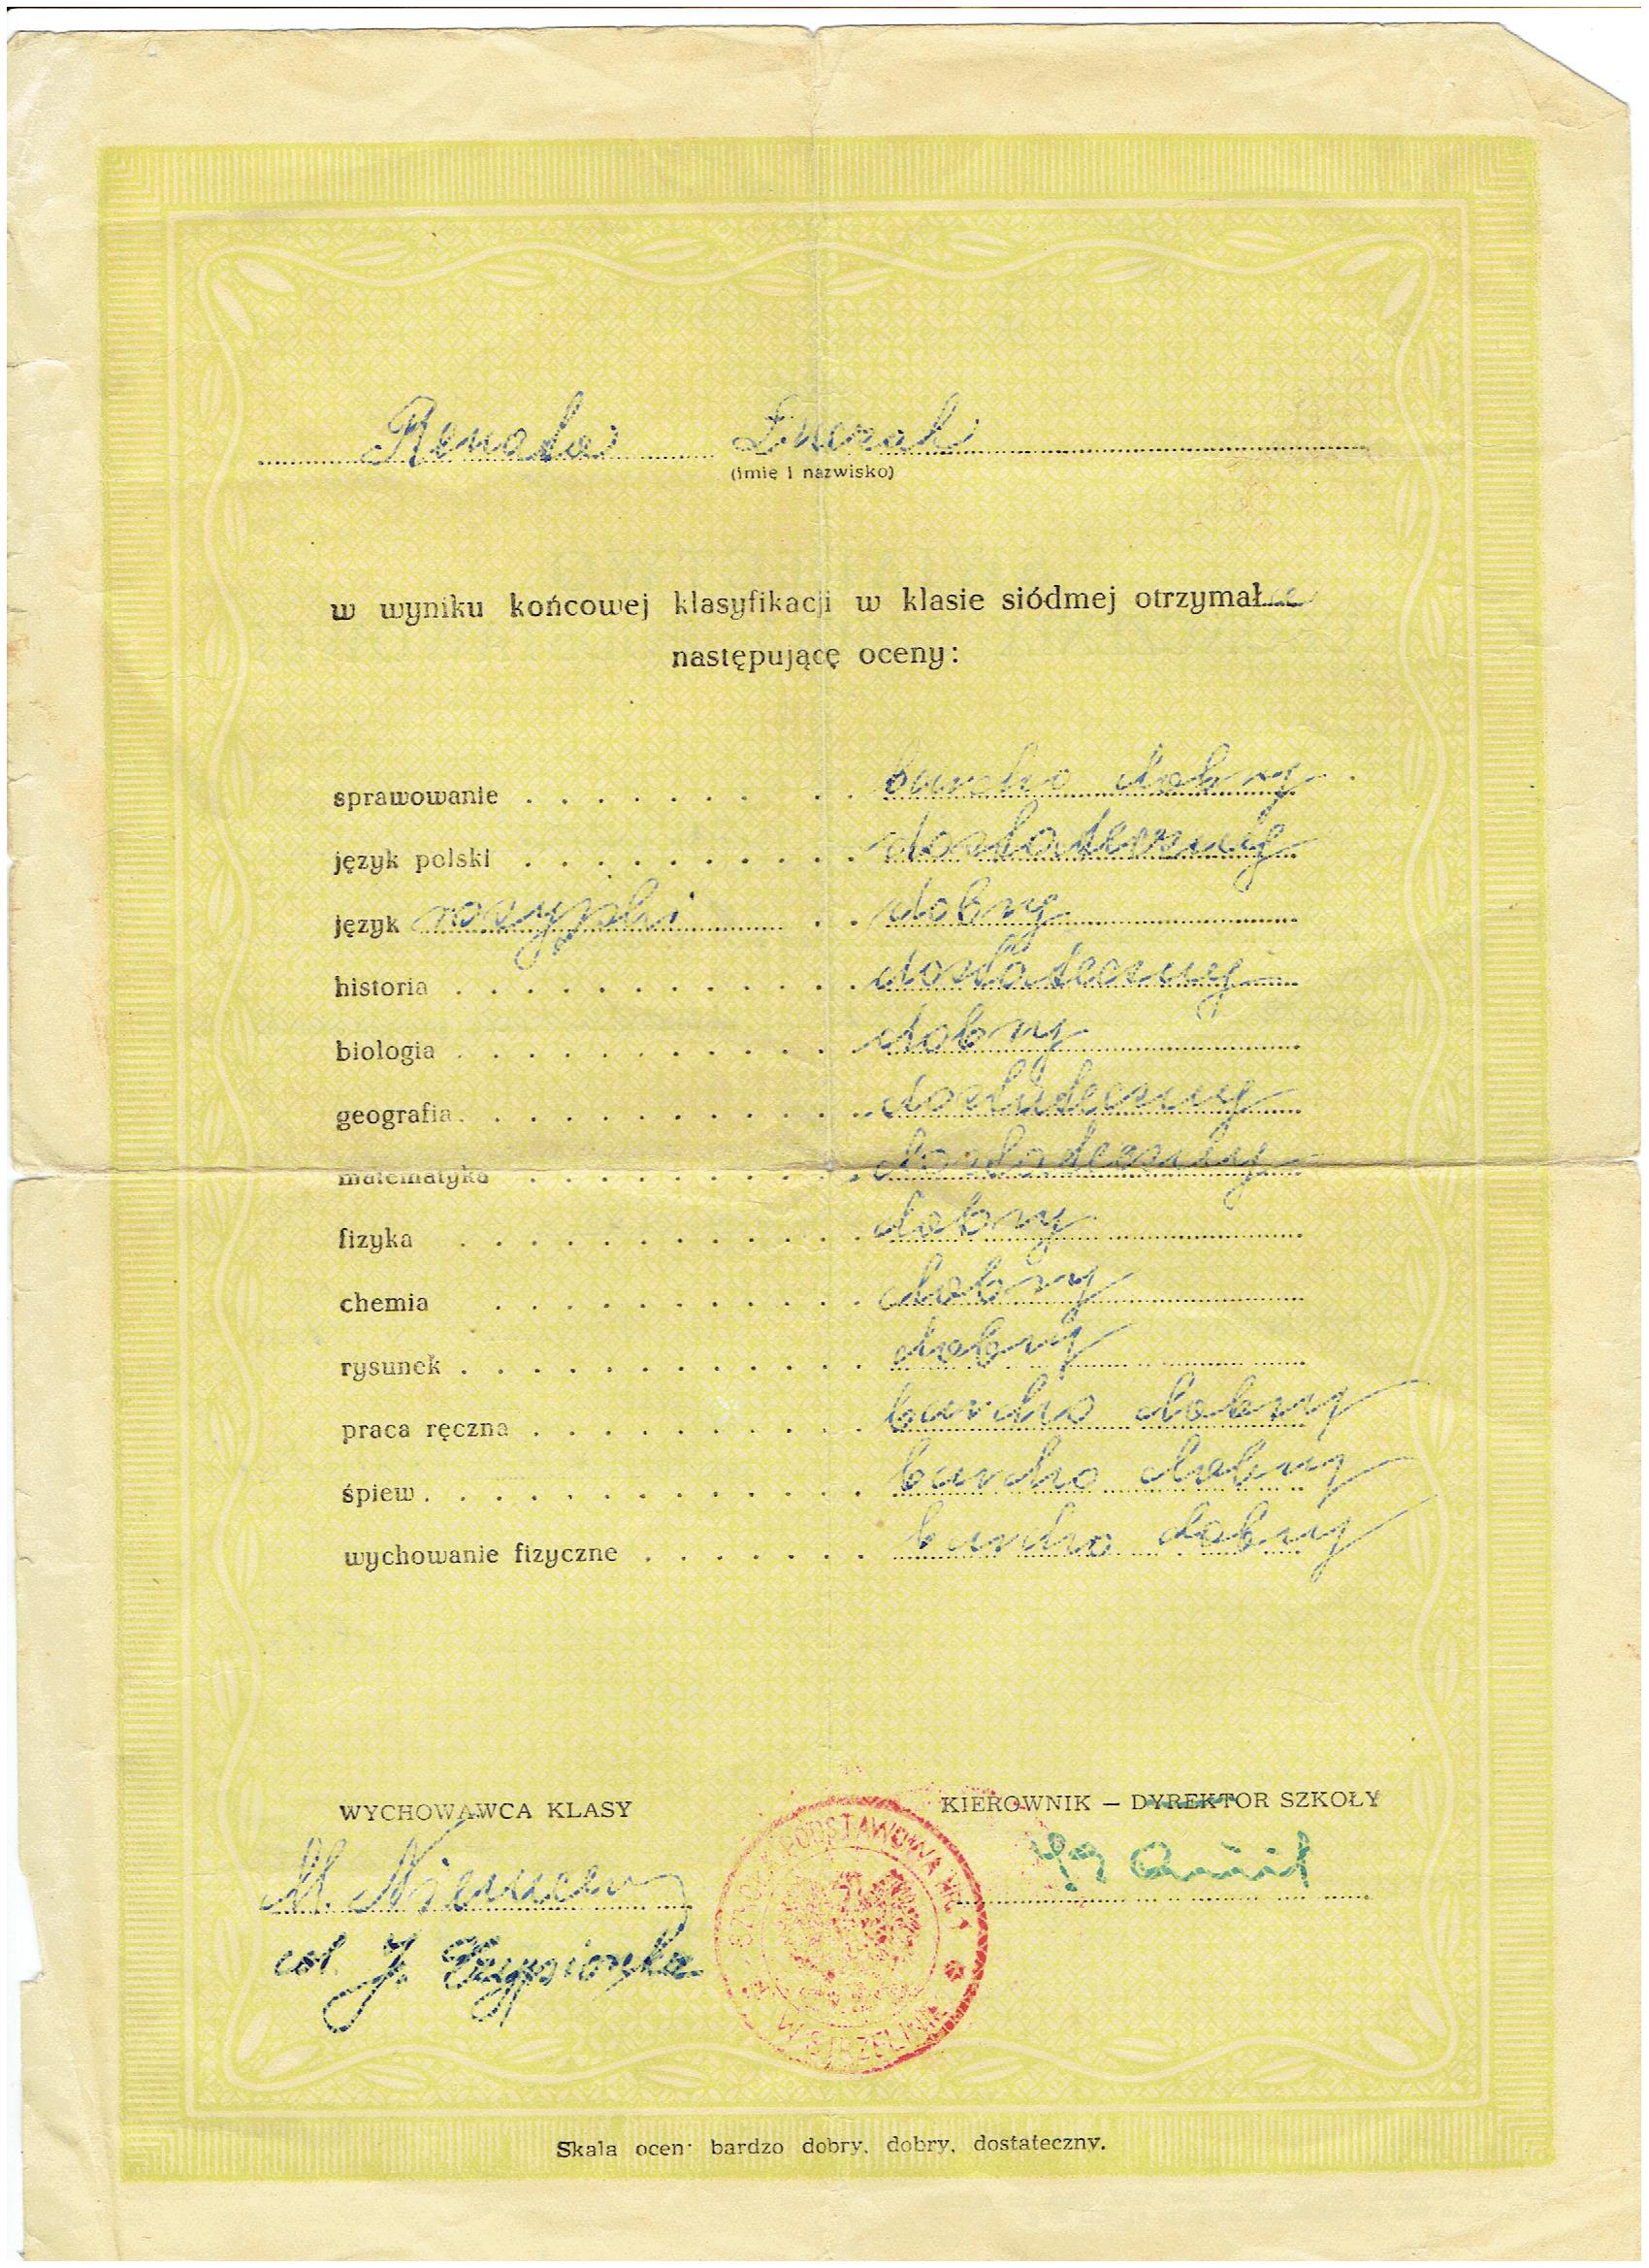 Renata
(imię i nazwisko)
w wyniku końcowej klasyfikacji w klasie siódmej otrzymała
następującę oceny:
sprawowanie . . . . . . . . . bardzo dobry
język polski . . . . . . . . . . dostateczny
język rosyjski . . dobry
historia . . . . . . . . . . . . dostateczny
biologia . . . . . . . . . . . dobry
geografia . . . . . . . . . . . dostateczny
matematyka . . . . . . . . . dostateczny
fizyka . . . . . . . . . . . . dobry
chemia . . . . . . . . . . . dobry
rysunek . . . . . . . . . . . . dobry
praca ręczna . . . . . . . . . . bardzo dobry
śpiew . . . . . . . . . . . . . bardzo dobry
wychowanie fizyczne . . . . . . . bardzo dobry
WYCHOWAWCA KLASY
KIEROWNIK — DYREKTOR SZKOŁY
M.
J.
SZKOŁA PODSTAWOWA NR
W STRZELINIE
Skala ocen: bardzo dobry, dobry, dostateczny.